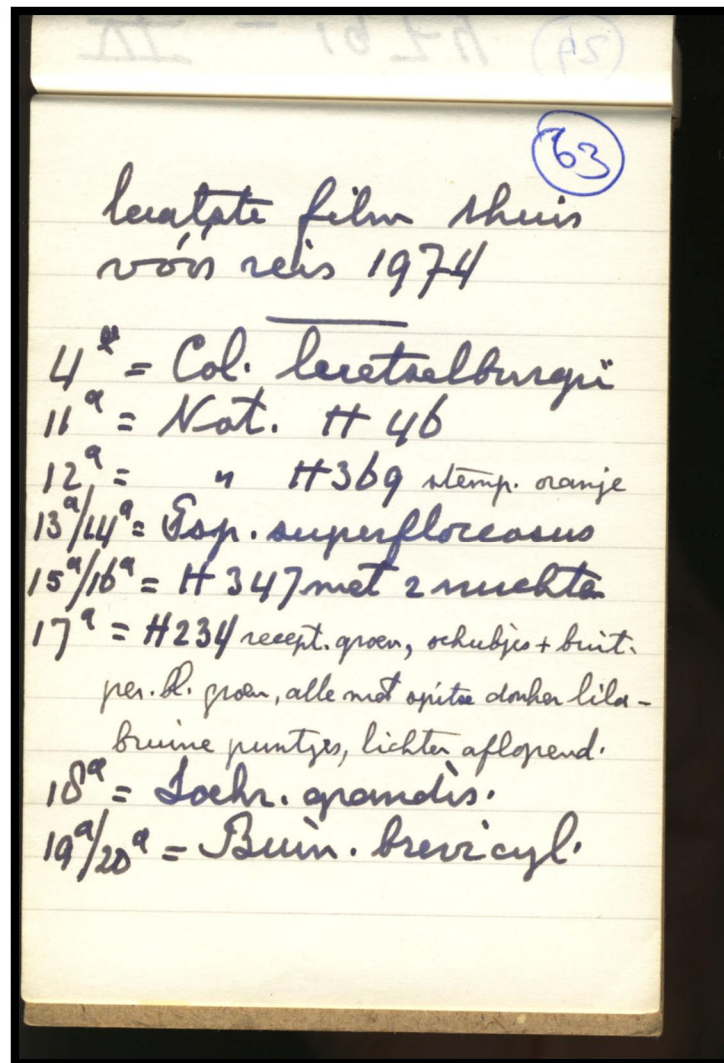 63
laatste film thuis
vóór reis 1974
4ª = Col.
11ª = Not. H 46
12ª = " H369 stemp. oranje
13ª/14ª = Esp. superfloccosus
15ª/16ª = H 347 met 2 vruchten
17ª = H234 recept. groen, schubjes + buit.
per. bl. groen, alle met spitse donker lila-
bruine puntjes, lichter aflopend.
18ª = Soehr. grandis.
19ª/20ª = Buin. brevicyl.